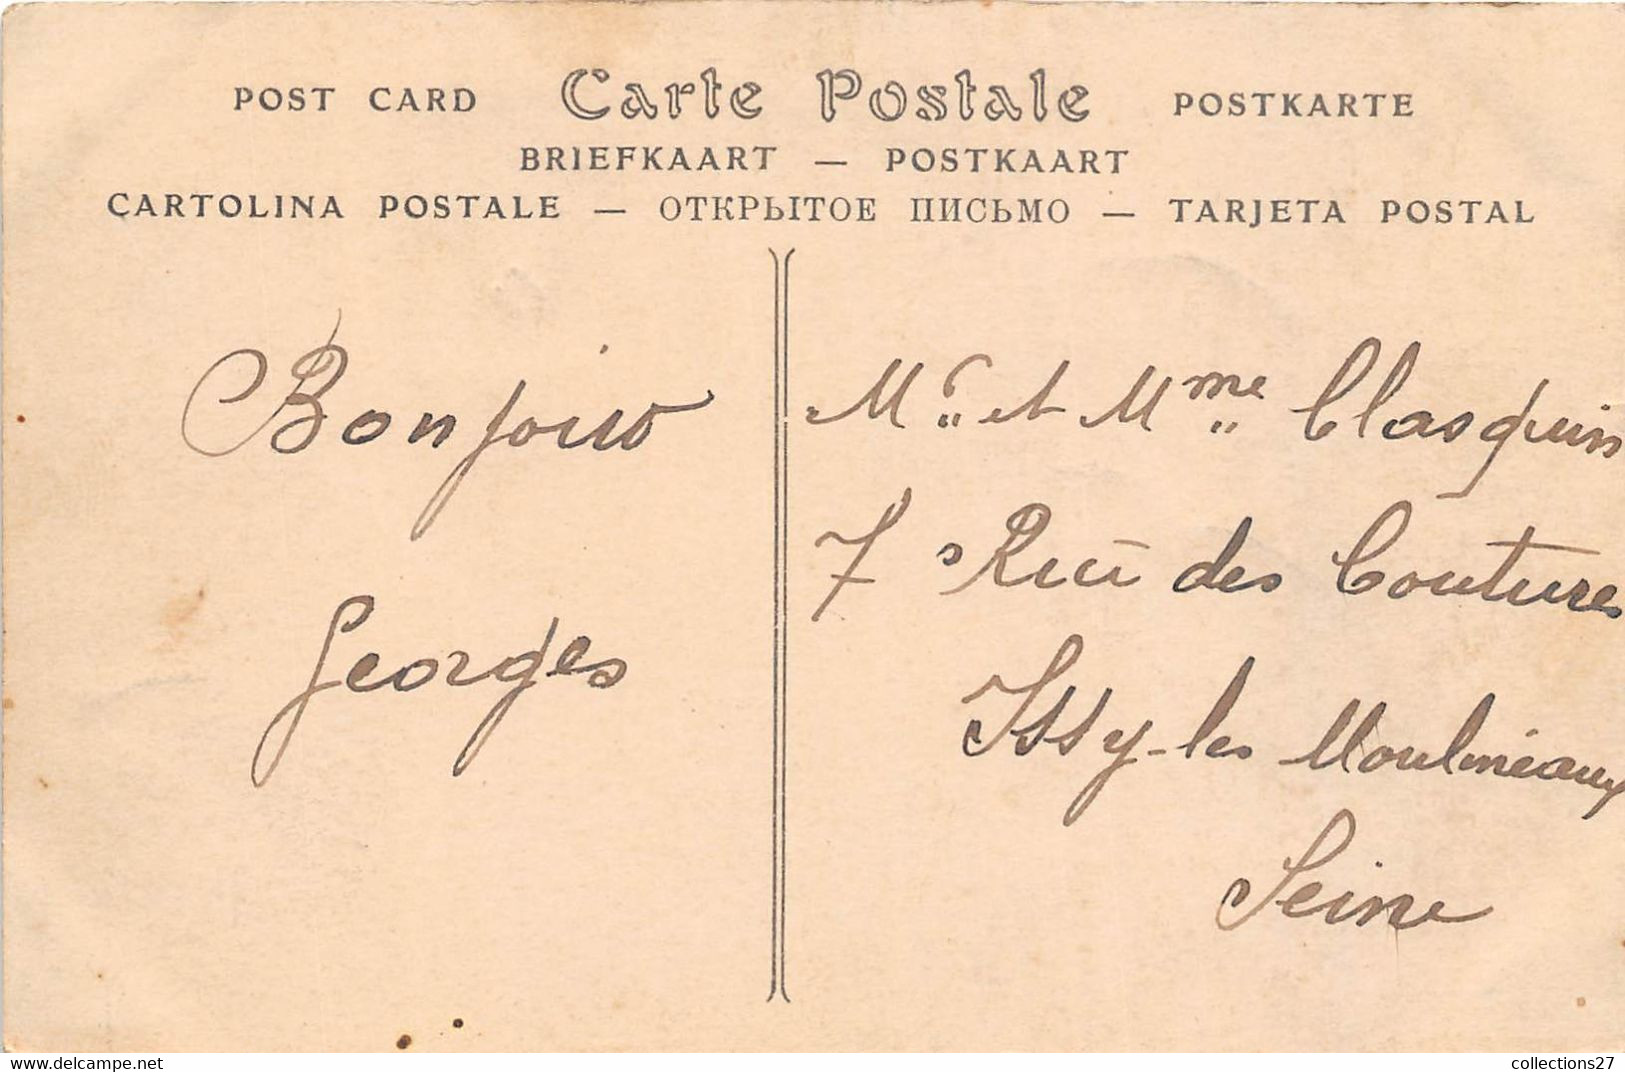 POST CARD Carte Postale POSTKARTE
BRIEFKAART — POSTKAART
CARTOLINA POSTALE — ОТКРЫТОЕ ПИСЬМО — TARJETA POSTAL
Bonjour
Georges
Mr et Mme Clasquin
7 Rue des Coutures
Issy-les Moulineaux
Seine
delcampe.net
collections27